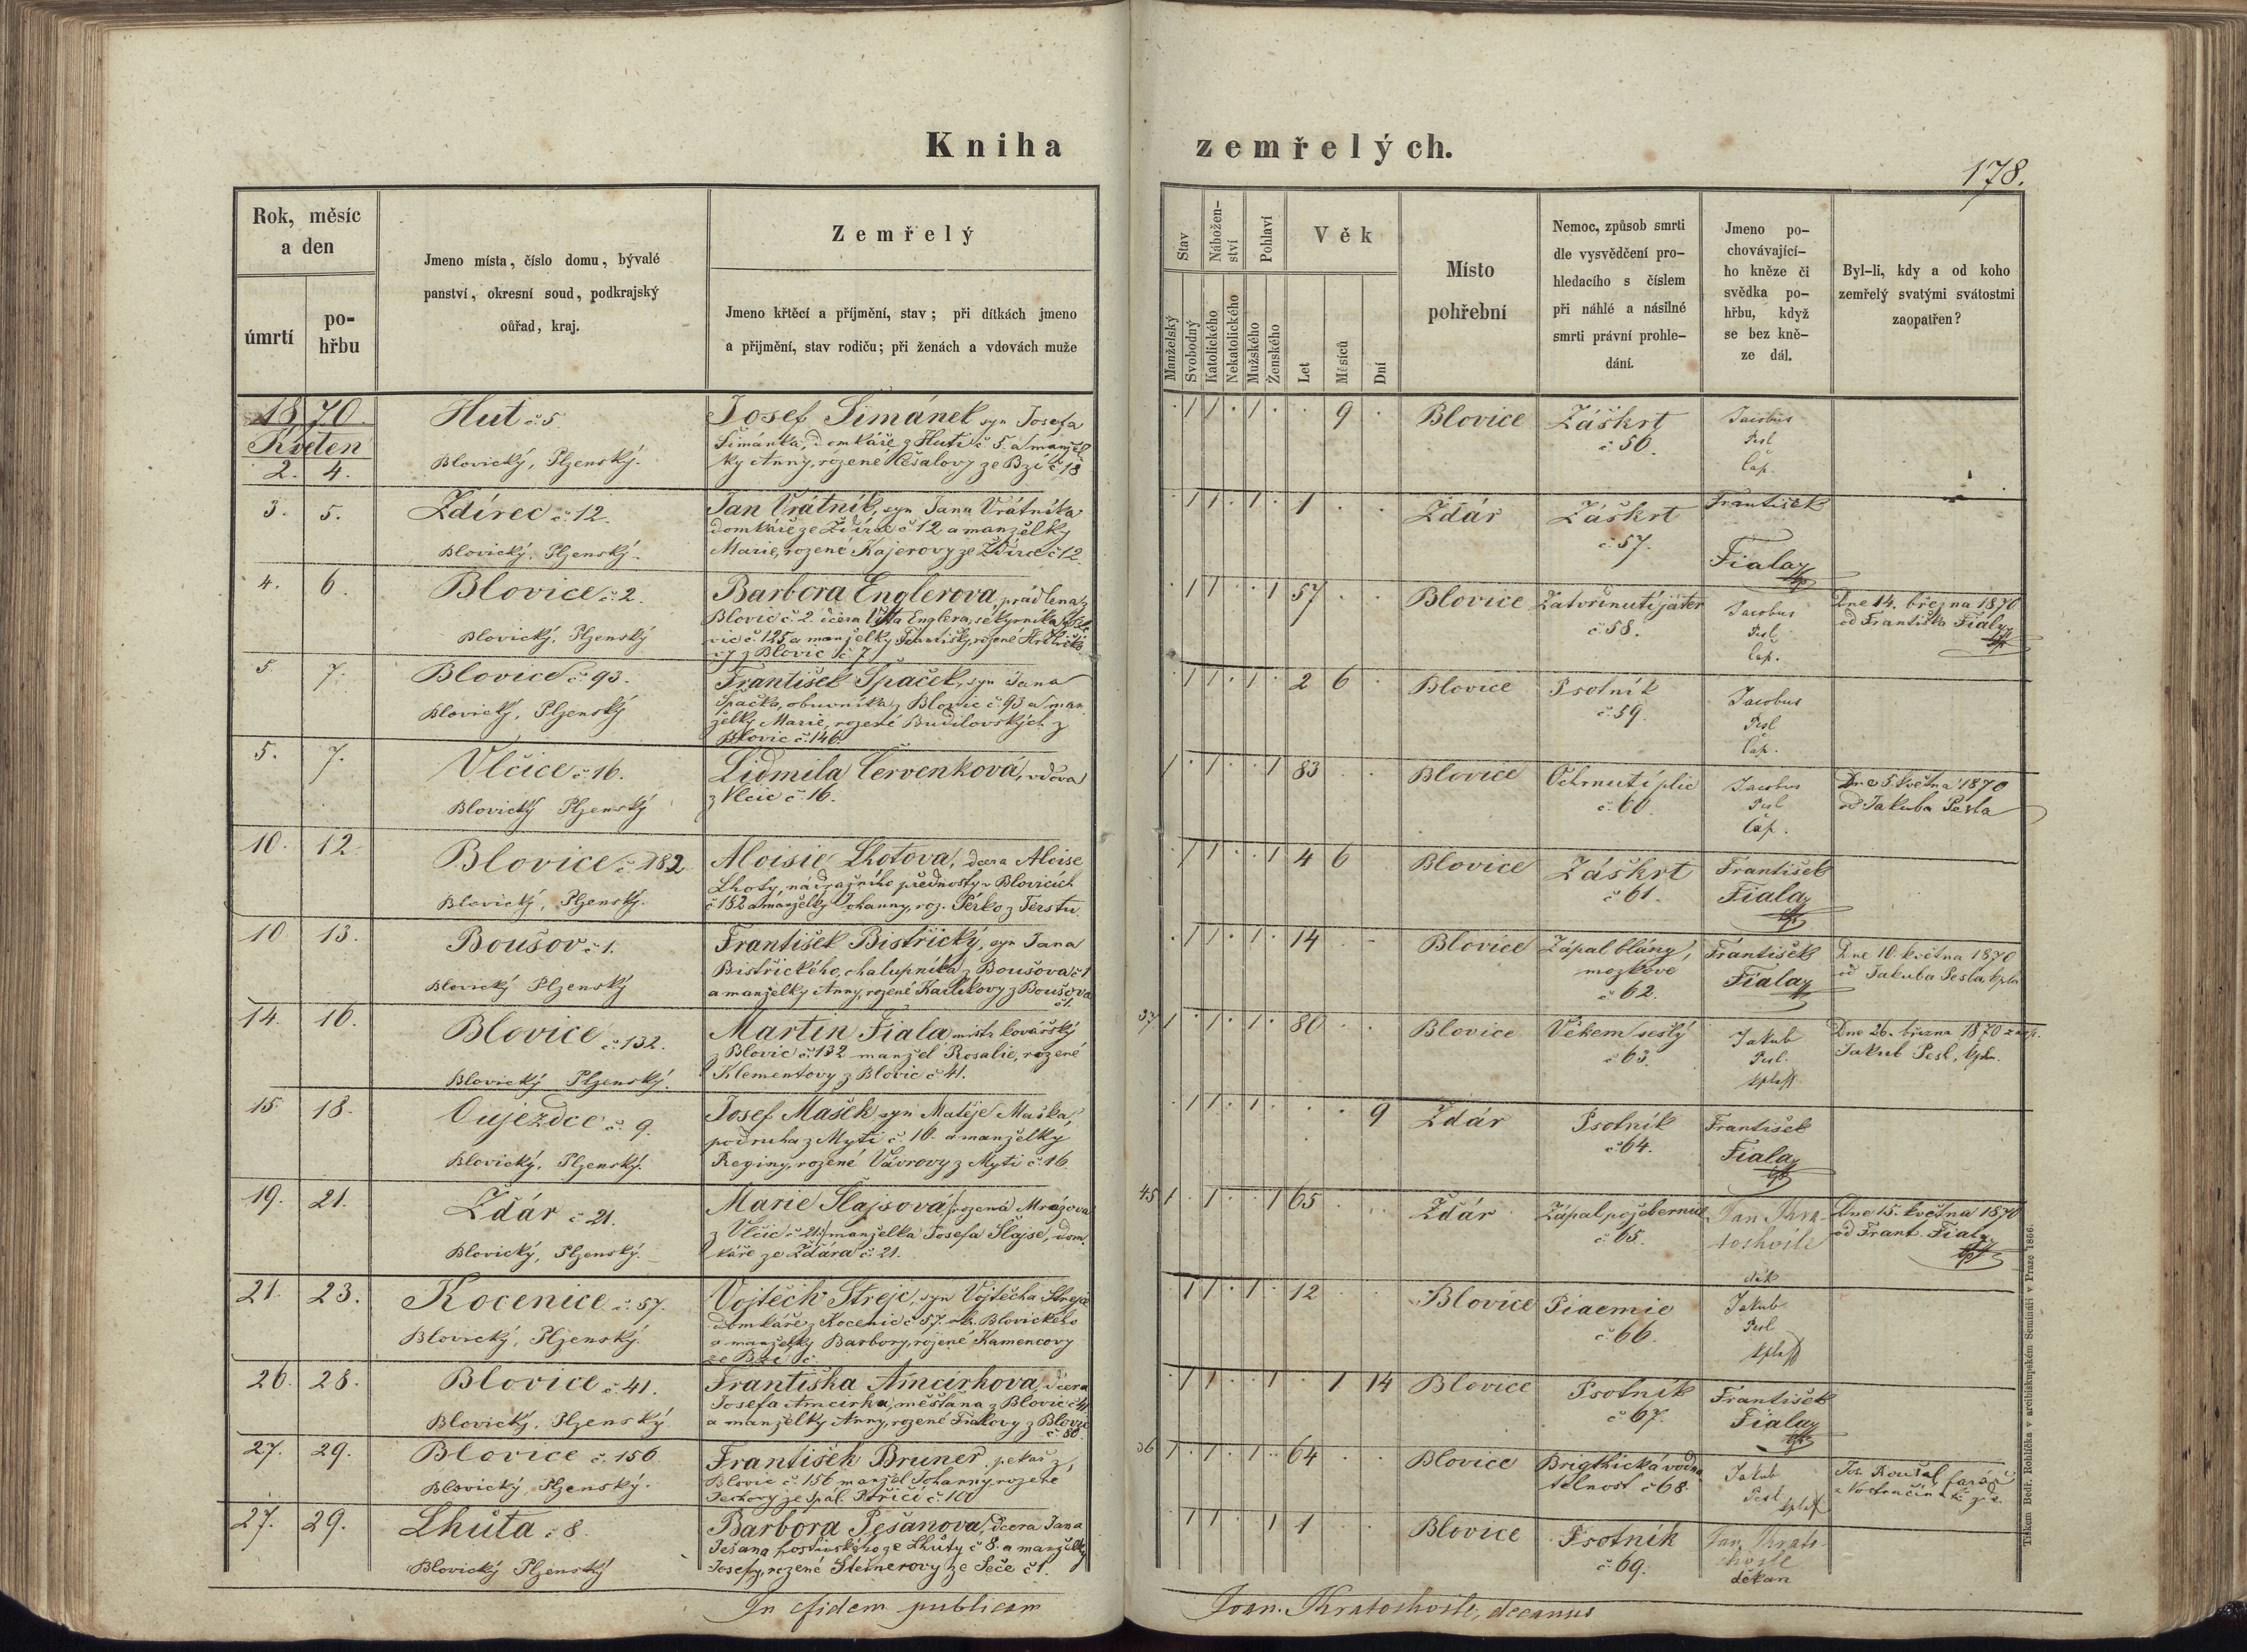 Kniha
zemřelých.
178.
Rok, měsíc
a den
úmrtí
po-
hřbu
Jmeno místa, číslo domu, bývalé
panství, okresní soud, podkrajský
oůřad, kraj.
Zemřelý
Jmeno křtěcí a příjmění, stav; při dítkách jmeno
a přijmění, stav rodičů; při ženách a vdovách muže
Stav
Manželský
Svobodný
Nábožen-
ství
Katolického
Nekatolického
Pohlaví
Mužského
Ženského
Věk
Let
Měsíců
Dní
Místo
pohřební
Nemoc, způsob smrti
dle vysvědčení pro-
hledacího s číslem
při náhlé a násilné
smrti právní prohle-
dání.
Jmeno po-
chovávající-
ho kněze či
svědka po-
hřbu, když
se bez kně-
ze dál.
Byl-li, kdy a od koho
zemřelý svatými svátostmi
zaopatřen?
1870.
Květen
2. 4.
Huť č. 5.
Blovický, Plzenský.
Josef Šimánek syn Josefa
Šimánka, domkáře z Huti č. 5. a manžel
ky Anny, rozené ze Bzí č 18
1 1 1 9
Blovice
Záškrt
č. 56.
Jacobus
Pesl
Cap.
3. 5.
Ždírec č. 12.
Blovický, Plzenský.
Jan Vrátník, syn Jana Vrátníka
domkáře ze Ždírce č 12 a manželky
Marie, rozené Kajerovy ze Ždírce č 12.
1 1 1 1
Ždár
Záškrt
č. 57.
František
Fiala
4. 6.
Blovice č. 2.
Blovický, Plzenský
Barbora Englerova, pradlena z
Blovic č. 2. dcera Víta Englera, sekyrníka z Blo
vic č. 125 a manželky Františky, rozené
vy z Blovic č. 7
1 1 1 57
Blovice
Zatvrdnutí jater
č 58.
Jacobus
Pesl
Cap.
Dne 14. března 1870
od Františka Fialy
5. 7.
Blovice č. 93.
Blovický, Plzenský
František Špaček, syn Jana
Špačka, obuvníka z Blovic č. 93 a man
želky Marie, rozené Budilovských z
Blovic č. 146.
1 1 1 2 6
Blovice
Psotník
č. 59.
Jacobus
Pesl
Cap.
5. 7.
Vlčice č 16.
Blovický Plzenský
Lidmila Červenková, vdova
z Vlčic č. 16.
1 1 1 83
Blovice
Ochrnutí plic
č. 60.
Jacobus
Pesl
Cap.
Dne 5. května 1870
od Jakuba Pesla
10. 12.
Blovice č. 182
Blovický, Plzenský.
Aloisie Lhotova, dcera Aloise
Lhoty, nádražního přednosty v Blovicích
č 182 a manželky Johanny, roz. Perko z Terstu
1 1 1 4 6
Blovice
Záškrt
č 61.
František
Fiala
10 13.
Boušov č 1.
Blovický Plzenský
František Bistřický, syn Jana
Bistřického, chalupníka z Boušova č 1
a manželky Anny, rozené Kailikovy z Boušova
č 1.
1 1 1 14
Blovice
Zápal blány,
mozkové
č 62.
František
Fiala
Dne 10. května 1870
od Jakuba Pesla, kpla
14. 16.
Blovice č. 132.
Blovický Plzenský.
Martin Fiala mistr kovářský
z Blovic č. 132 manžel Rosalie, rozené
Klementovy z Blovic č 41.
37 1 1 1 80
Blovice
Věkem sešlý
č 63.
Jakub
Pesl.
kplan
Dne 26. března 1870 zaop.
Jakub Pesl, kpln.
15 18.
Oujezdce č. 9.
Blovický, Plzenský.
Josef Mašek syn Matěje Maška,
podruha z Myti č. 16. a manželky
Reginy, rozené Vávrovy z Myti č. 16.
1 1 1 9
Ždár
Psotník
č 64.
František
Fiala
19. 21.
Ždár č 21.
Blovický, Plzenský.
Marie Šlajsová, (rozená Mrázova
z Vlčic č 21.) manželka Josefa Šlajse, dom
káře ze Ždára č. 21.
45 1 1 1 65
Ždár
Zápal pojebernice
č. 65.
Jan Kra-
tochvíle
děk
Dne 15. května 1870
od Frant. Fialy
21. 23.
Kocenice č. 57.
Blovický, Plzenský.
Vojtěch Strejc, syn Vojtěcha Strejce
domkáře z Kocenic č 57. okr. Blovického
a manželky Barbory, rozené Kamencovy
ze Bzí č.
1 1 1 12
Blovice
Piaemie
č 66.
Jakub
Pesl
kplan
26. 28.
Blovice č 41.
Blovický, Plzenský.
Františka Amcirhova, dcera
Josefa Amcirha, měšťana z Blovic č 41
a manželky Anny, rozené Fialovy z Blovic
č 80.
1 1 1 1 14
Blovice
Psotník
č 67.
František
Fiala
27. 29.
Blovice č. 156.
Blovický, Plzenský.
František Bruner, pekař z,
Blovic č. 156 manžel Johanny, rozené
ze Spál. Poříčí č. 100
36 1 1 1 64
Blovice
Brigthická vodna
telnost č 68.
Jakub
Pesl
kplan
Jos. Roušal, farář
27. 29.
Lhůta č 8.
Blovický Plzenský
Barbora Pešanova, dcera Jana
Pešana hostinského ze Lhůty č 8. a manželky
Josefy, rozené Steinerovy ze Seče č 1.
1 1 1 1
Blovice
Psotník
č 69.
Jan Krato-
chvíle
děkan
In fidem publicam
Joan. Kratochvile, decanus
Tiskem Bedř. Rohlíčka v arcibiskupském Semináři v Praze 1856.